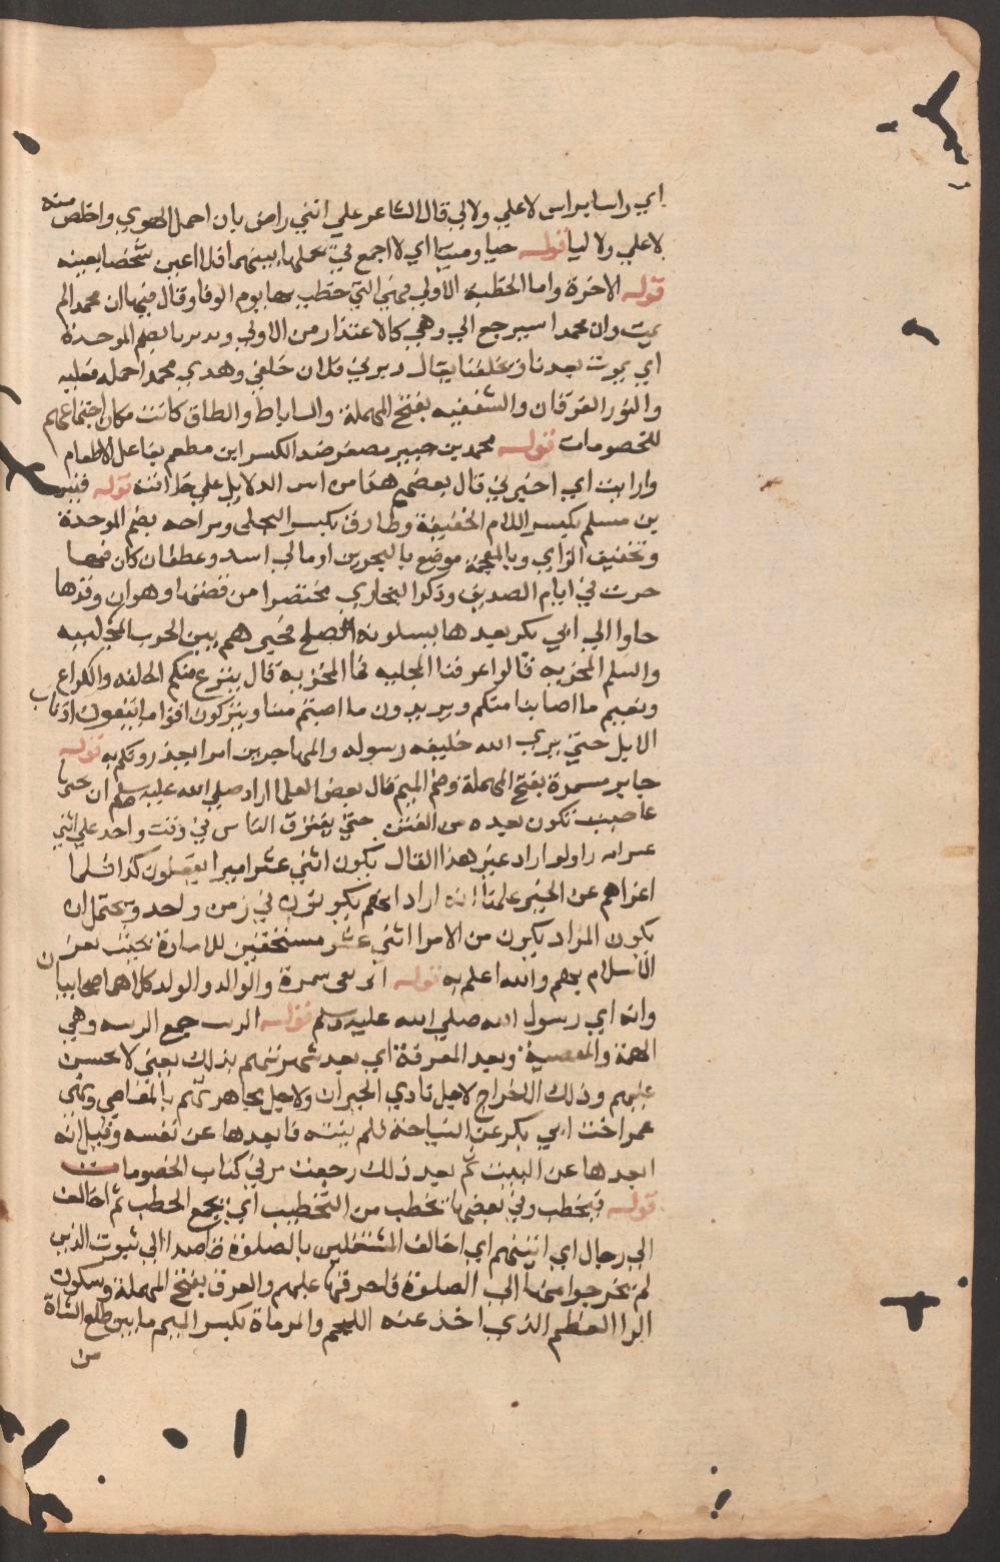 اي راسا براس لا علي ولا لي قال الشاعر علي انني راض بان احمل الهوي واخلص منه
لا علي ولا ليا قوله حيا وميتا اي لا اجمع في تحملها بينهما فلا اعين شخصا بعينه
قوله الاخرة واما الخطبة الاولي فهي التي خطب بها يوم الوفا وقال فيها ان محمدا لم
يمت وان محمدا سيرجع الي وهي كالاعتذار من الاولي ويدبرنا بضم الموحدة
اي يموت بعدنا ويخلفنا يقال دبرني فلان خلفني وهدي محمدا حمله فعليه
والنور الفرقان والسقيفه بفتح المهملة والساباط والطاق كانت مكان اجتماعهم
للخصومات قوله محمد بن جبير مصغر ضد الكسر ابن مطعم بفاعل الاطعام
وارايت اي اخبرني قال بعضهم هذا من الدلايل علي خلافته قوله قيس
بن مسلم بكسر اللام الخفيفة وطارق بكسر البجلي وبزاخه بضم الموحدة
وتخفيف الزاي وبالمعجمة موضع بالبحرين او ما لبني اسد وغطفان كان فيها
حرب في ايام الصديق وذكر البخاري مختصرا من قصتها وهو ان وفدها
جاوا الي ابي بكر بعدها يسلونه الصلح فخيرهم بين الحرب المجليه
والسلم المخزيه قالوا عرفنا المجليه فما المخزيه قال ينزع منكم الحلقه والكراع
ونغنم ما اصابنا منكم ويردون ما اصبتم منا ويتركون اقواما يتبعون اذناب
الابل حتي يري الله خليفه رسوله والمهاجرين امرا يعذرونكم به قوله
جابر سمرة بفتح المهملة وضم الميم قال بعض العلما اراد صلي الله عليه وسلم ان يخبر
باعاجيب تكون بعده من الفتن حتي يفترق الناس في وقت واحد علي اثني
عشر اميرا ولو اراد غير هذا لقال يكون اثني عشر اميرا يفعلون كذا فلما
اعراهم عن الخبر علمنا انه اراد انهم يكونون في زمن واحد ويحتمل ان
يكون المراد يكون من الامرا اثني عشر مستحقين للامارة بحيث يعز
الاسلام بهم والله اعلم به قوله ابي يعني سمرة والوالد والولد كلاهما صحابيان
وانه اي رسول الله صلي الله عليه وسلم قوله الريب جمع الريبه وهي
التهمة والمعصية وبعد المعرفة اي بعد شهرتهم بذلك يعني لا يحسن
عليهم وذلك الاخراج لاجل تاذي الجيران ولاجل مجاهرتهم بالمعاصي ونهي
عمر اخت ابي بكر عن النياحة فلم ينته فابعدها عن نفسه وقيل انه
ابعدها عن البيت ثم بعد ذلك رجعت مر في كتاب الخصومات
قوله فيحطب وفي بعضها يحطب من التحطيب اي يجمع الحطب ثم اخالف
الي رجال اي اتيتهم اي اخالف المشتغلين بالصلوة قاصدا الي بيوت الذين
لم يخرجوا منها الي الصلوة فاحرقها عليهم والعرق بفتح المهملة وسكون
الرا العظم الذي اخذ عنه اللحم والمرماة بكسر الميم ما بين ظلفي الشاة
من